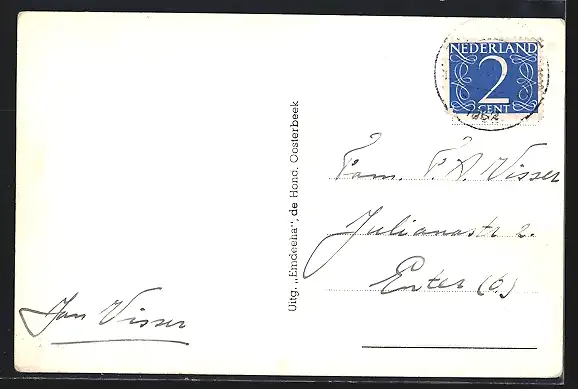 NEDERLAND
2
CENT
1952
Uitg. „Emdeena", de Hond. Oosterbeek
Fam. F. A. Visser
Julianastr 2.
Enter (O.)
Jan Visser